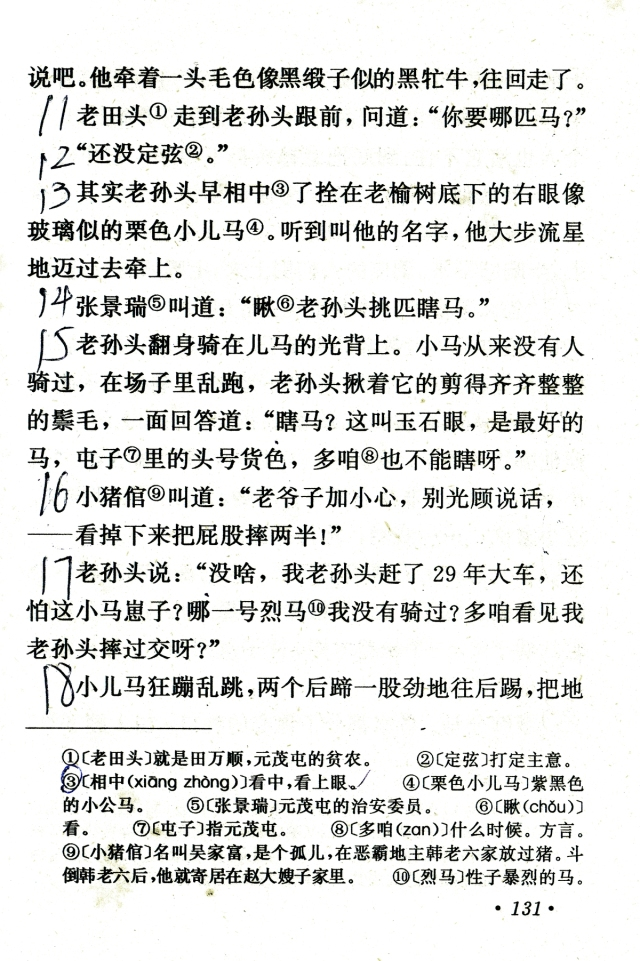 说吧。他牵着一头毛色像黑缎子似的黑牤牛，往回走了。
11 老田头①走到老孙头跟前，问道：“你要哪匹马？”
12 “还没定弦②。”
13 其实老孙头早相中③了拴在老榆树底下的右眼像
玻璃似的栗色小儿马④。听到叫他的名字，他大步流星
地迈过去牵上。
14 张景瑞⑤叫道：“瞅⑥老孙头挑匹瞎马。”
15 老孙头翻身骑在儿马的光背上。小马从来没有人
骑过，在场子里乱跑，老孙头揪着它的剪得齐齐整整
的鬃毛，一面回答道：“瞎马？这叫玉石眼，是最好的
马，屯子⑦里的头号货色，多咱⑧也不能瞎呀。”
16 小猪倌⑨叫道：“老爷子加小心，别光顾说话，
——看掉下来把屁股摔两半！”
17 老孙头说：“没啥，我老孙头赶了 29 年大车，还
怕这小马崽子？哪一号烈马⑩我没有骑过？多咱看见我
老孙头摔过交呀？”
18 小儿马狂蹦乱跳，两个后蹄一股劲地往后踢，把地
①〔老田头〕就是田万顺，元茂屯的贫农。 ②〔定弦〕打定主意。
③〔相中(xiāng zhòng)〕看中，看上眼。 ④〔栗色小儿马〕紫黑色
的小公马。 ⑤〔张景瑞〕元茂屯的治安委员。 ⑥〔瞅(chǒu)〕
看。 ⑦〔屯子〕指元茂屯。 ⑧〔多咱(zan)〕什么时候。方言。
⑨〔小猪倌〕名叫吴家富，是个孤儿，在恶霸地主韩老六家放过猪。斗
倒韩老六后，他就寄居在赵大嫂子家里。 ⑩〔烈马〕性子暴烈的马。
·131·